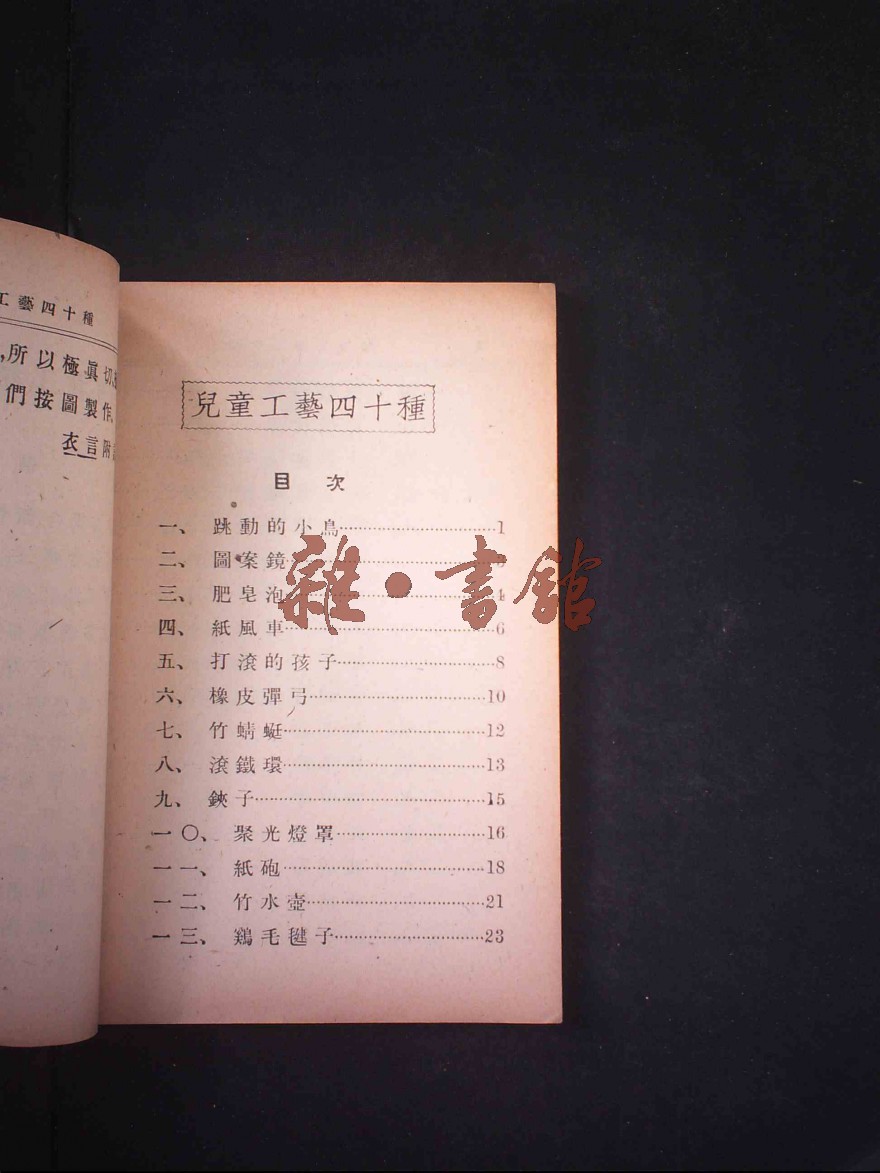 工藝四十種
所以極眞切
們按圖製作
衣言附
兒童工藝四十種
目 次
一、 跳動的小鳥……………………1
二、 圖案鏡……………………
三、 肥皂泡……………………4
四、 紙風車……………………6
五、 打滾的孩子……………………8
六、 橡皮彈弓……………………10
七、 竹蜻蜓……………………12
八、 滾鐵環……………………13
九、 鋏子……………………15
一〇、 聚光燈罩……………………16
一一、 紙砲……………………18
一二、 竹水壺……………………21
一三、 鷄毛毽子……………………23
雜·書館